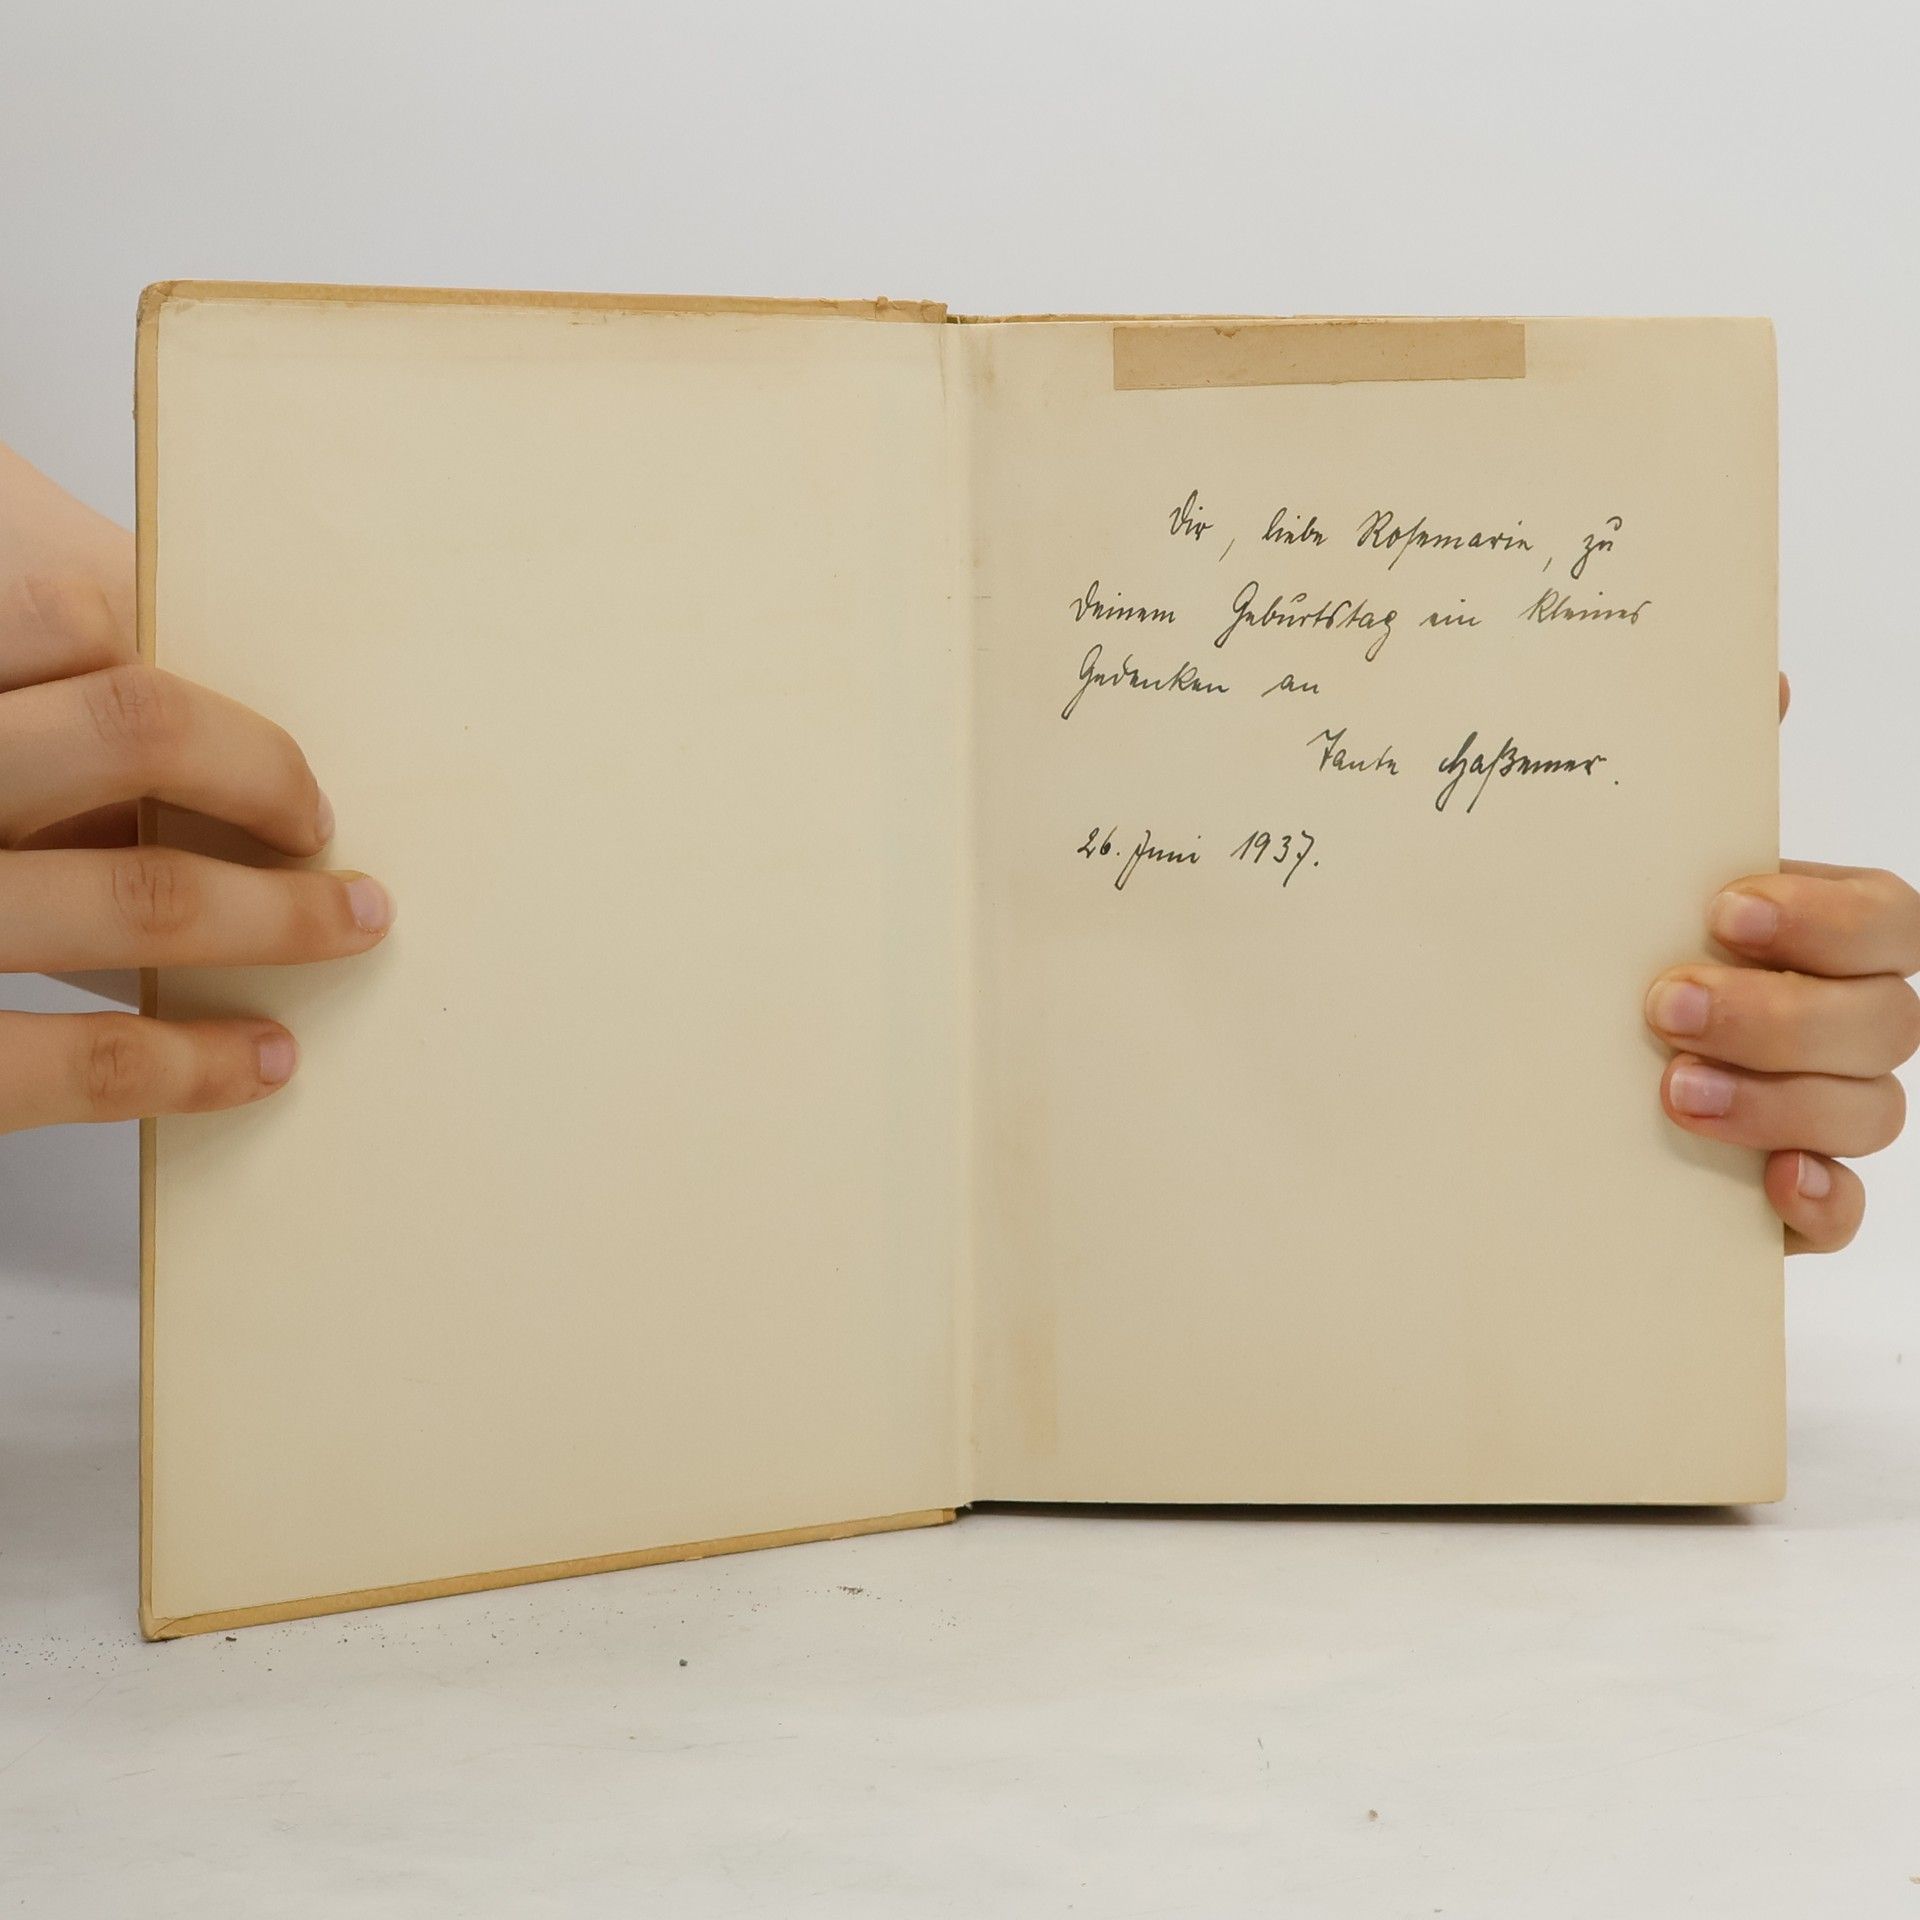 Dir, liebe Rosemarie, zu
Deinem Geburtstag ein kleines
Gedenken an
Tante Haßemer.
26. Juni 1937.